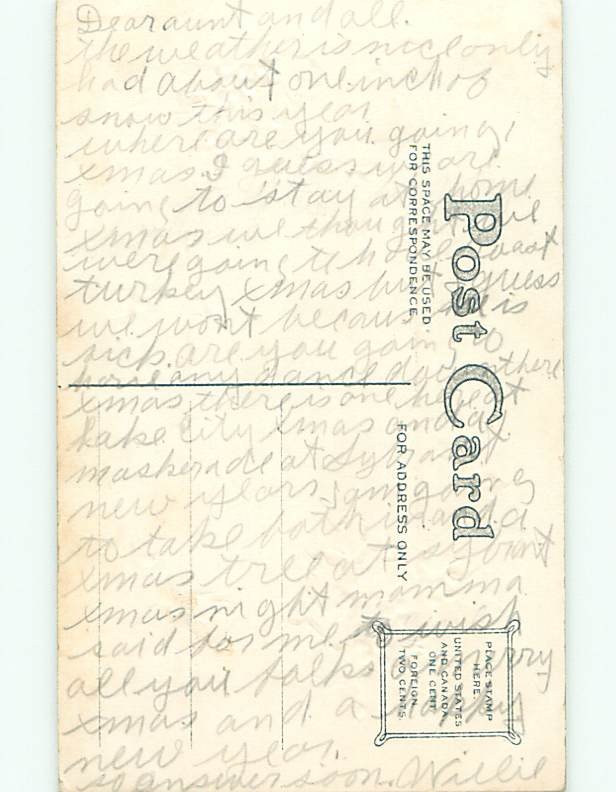 Dear aunt and all.
the weather is nice only
had about one inch of
snow this year
where are you going,
xmas. I guess we are
going to stay at home
xmas we thought we
were going to have roast
turkey xmas but I guess
we wont because he is
sick. are you going to
have any dance down there
xmas there is one here at
Lake City xmas and a
maskerade at
new years. I am going
to take both in and a
xmas tree at
xmas night mamma
said for me to wish
all you folks a merry
xmas and a happy
new year.
so answer soon. Willie
Post Card
THIS SPACE MAY BE USED
FOR CORRESPONDENCE
FOR ADDRESS ONLY
PLACE STAMP
HERE.
UNITED STATES
AND CANADA
ONE CENT
FOREIGN
TWO CENTS.